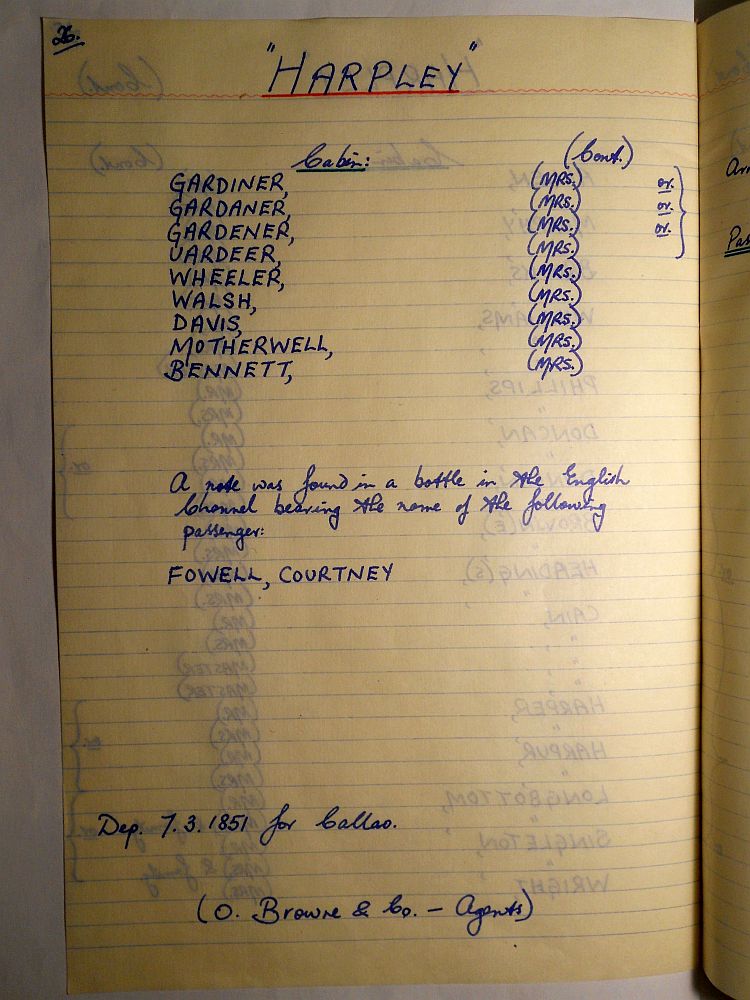 26.
"HARPLEY"
Cabin: (Cont.)
GARDINER, (MRS.) or.
GARDANER, (MRS.) or.
GARDENER, (MRS.) or.
UARDEER, (MRS.)
WHEELER, (MRS.)
WALSH, (MRS.)
DAVIS, (MRS.)
MOTHERWELL, (MRS.)
BENNETT, (MRS.)
A note was found in a bottle in the English
Channel bearing the name of the following
passenger:
FOWELL, COURTNEY
Dep. 7.3.1851 for Callao.
(O. Browne & Co. - Agents)